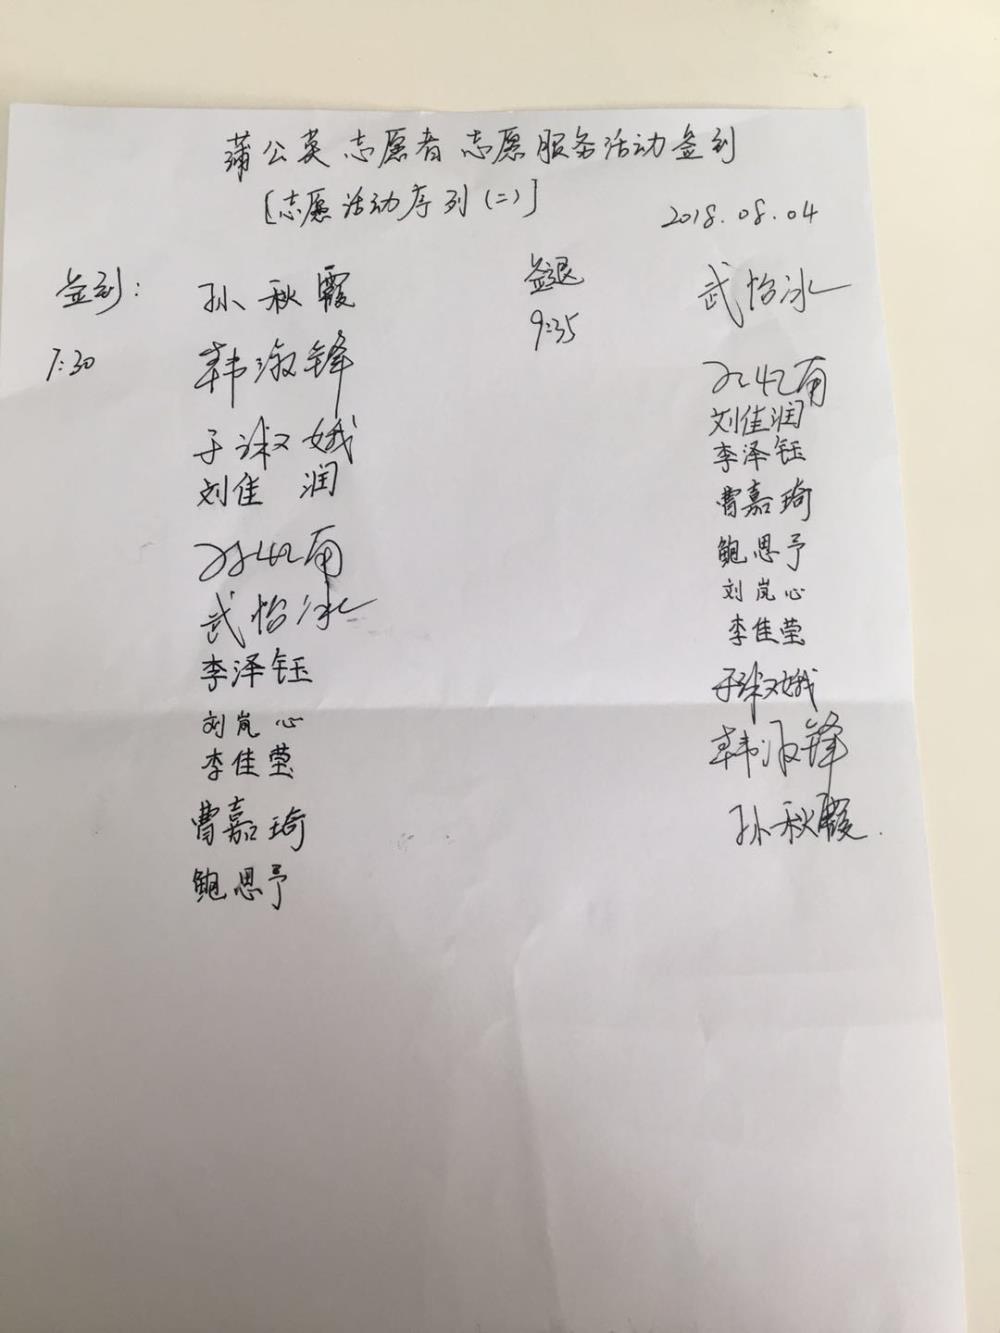 蒲公英志愿者志愿服务活动签到
[志愿活动序列(二)]
2018.08.04
签到:
7:30
孙秋霞
韩淑锋
于淑娥
刘佳润
武怡冰
李泽钰
刘岚心
李佳莹
曹嘉琦
鲍思予
签退
9:35
武怡冰
刘佳润
李泽钰
曹嘉琦
鲍思予
刘岚心
李佳莹
于淑娥
韩淑锋
孙秋霞